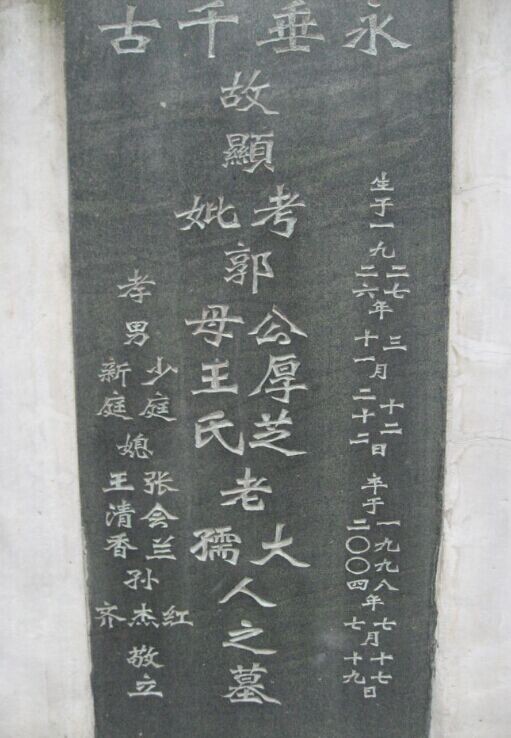 永垂千古
生于一九
二七
二六
年
三
十一
月
十二
二十二
日
卒于
一九九八
二〇〇四
年
七
七
月
十七
十九
日
故顯
考
妣
郭
公厚芝
母王氏
老
大
孺
人之墓
孝男
少庭
新庭
媳
张会兰
王清香
孙
红杰齐
敬立